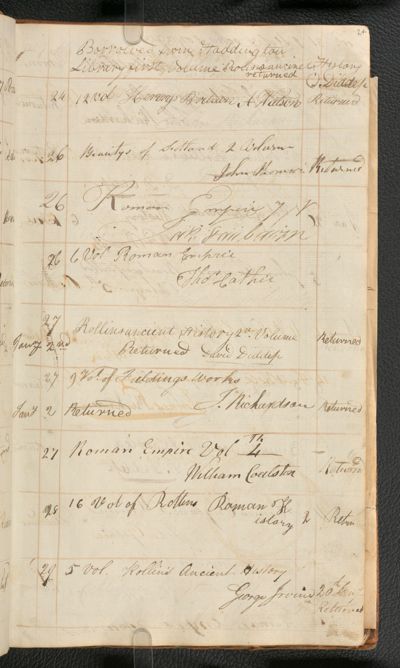 24
Borrowed from Haddington
Library first Volume Rollinsancine History
returned D Diddep
24 12 vol Henrys Britain A Neilson Returned
26 Beautys of Scotland 2 Volum
John Thomson Returned
26 Roman Empire 7 V
Wm Fairbairn
26 6 Vol Roman Empire
Thos Cathie
27 Rollinsancient History 2nd Volume Returned
Jany 2nd Returned David Diddep
27 9 Vol of Fieldings Works
Jany 2 Returned J. Richardson Returned
27 Roman Empire Vol 4th
William Coalston Returnd
28 16 Vol of Rollins Roman H
istory 2 Retn
29 5 Vol. Rollins Ancient History
George Irvine 20th Jany
Returned